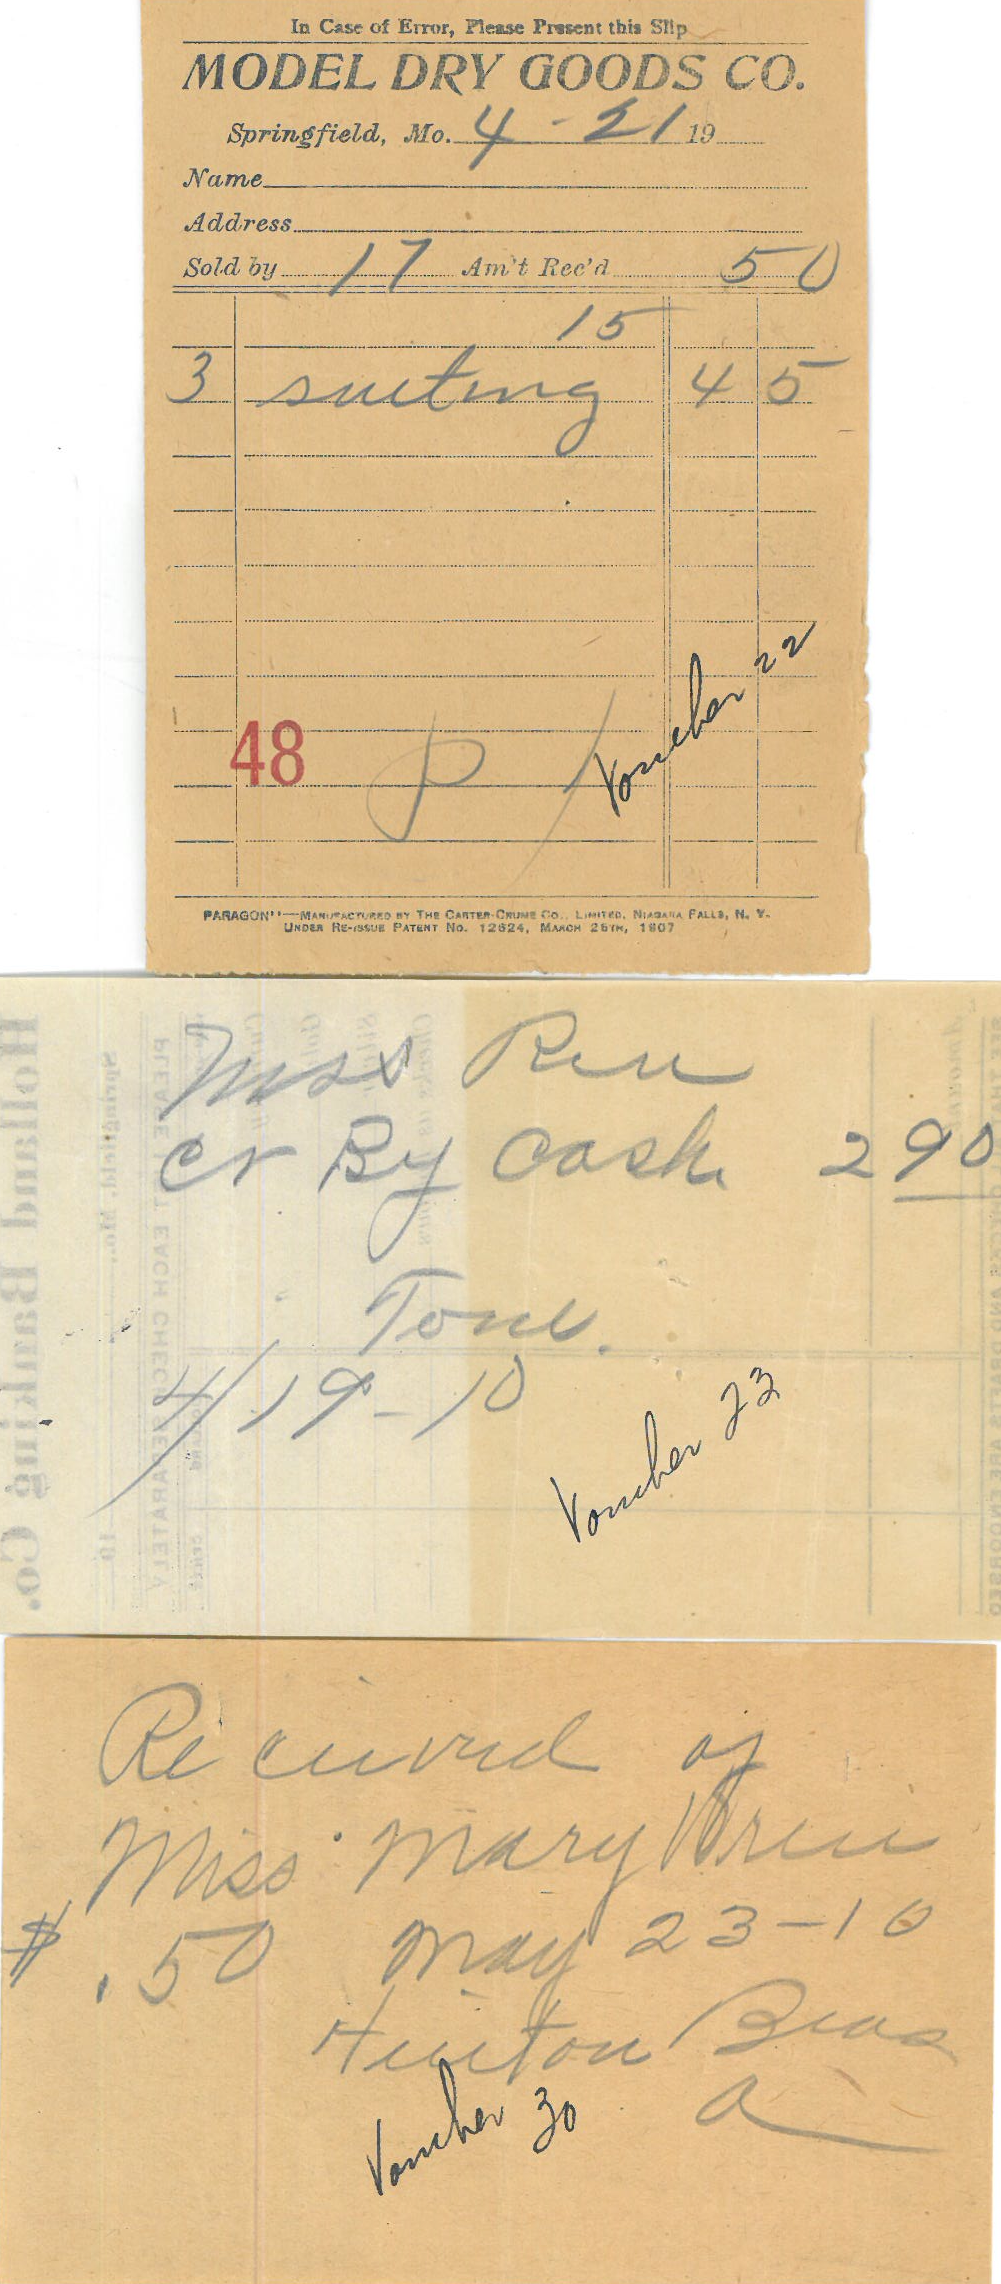 In Case of Error, Please Present this Slip
MODEL DRY GOODS CO.
Springfield, Mo. 4-21 19
Name
Address
Sold by 17 Am't Rec'd 50
15
3 suiting 45
Voucher 22
48
PARAGON"—MANUFACTURED BY THE CARTER-CRUME CO., LIMITED, NIAGARA FALLS, N. Y.
UNDER RE-ISSUE PATENT NO. 12624, MARCH 26TH, 1907
Miss Ren
Cr By Cash 2 90
4/19-10
Voucher 23
Holland Banking Co.
Springfield, Mo., 19
PLEASE LIST EACH CHECK SEPARATELY
Received of
Miss Mary Wren
$.50 May 23-10
Hinton Bros
a
Voucher 30